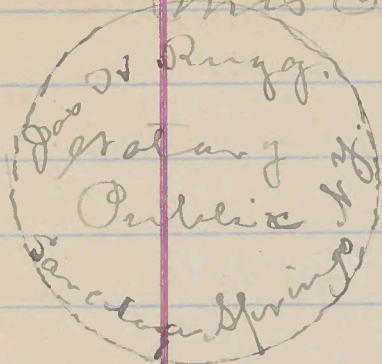 Jas H Rugg.
Notary
Public
Saratoga Springs N.Y.